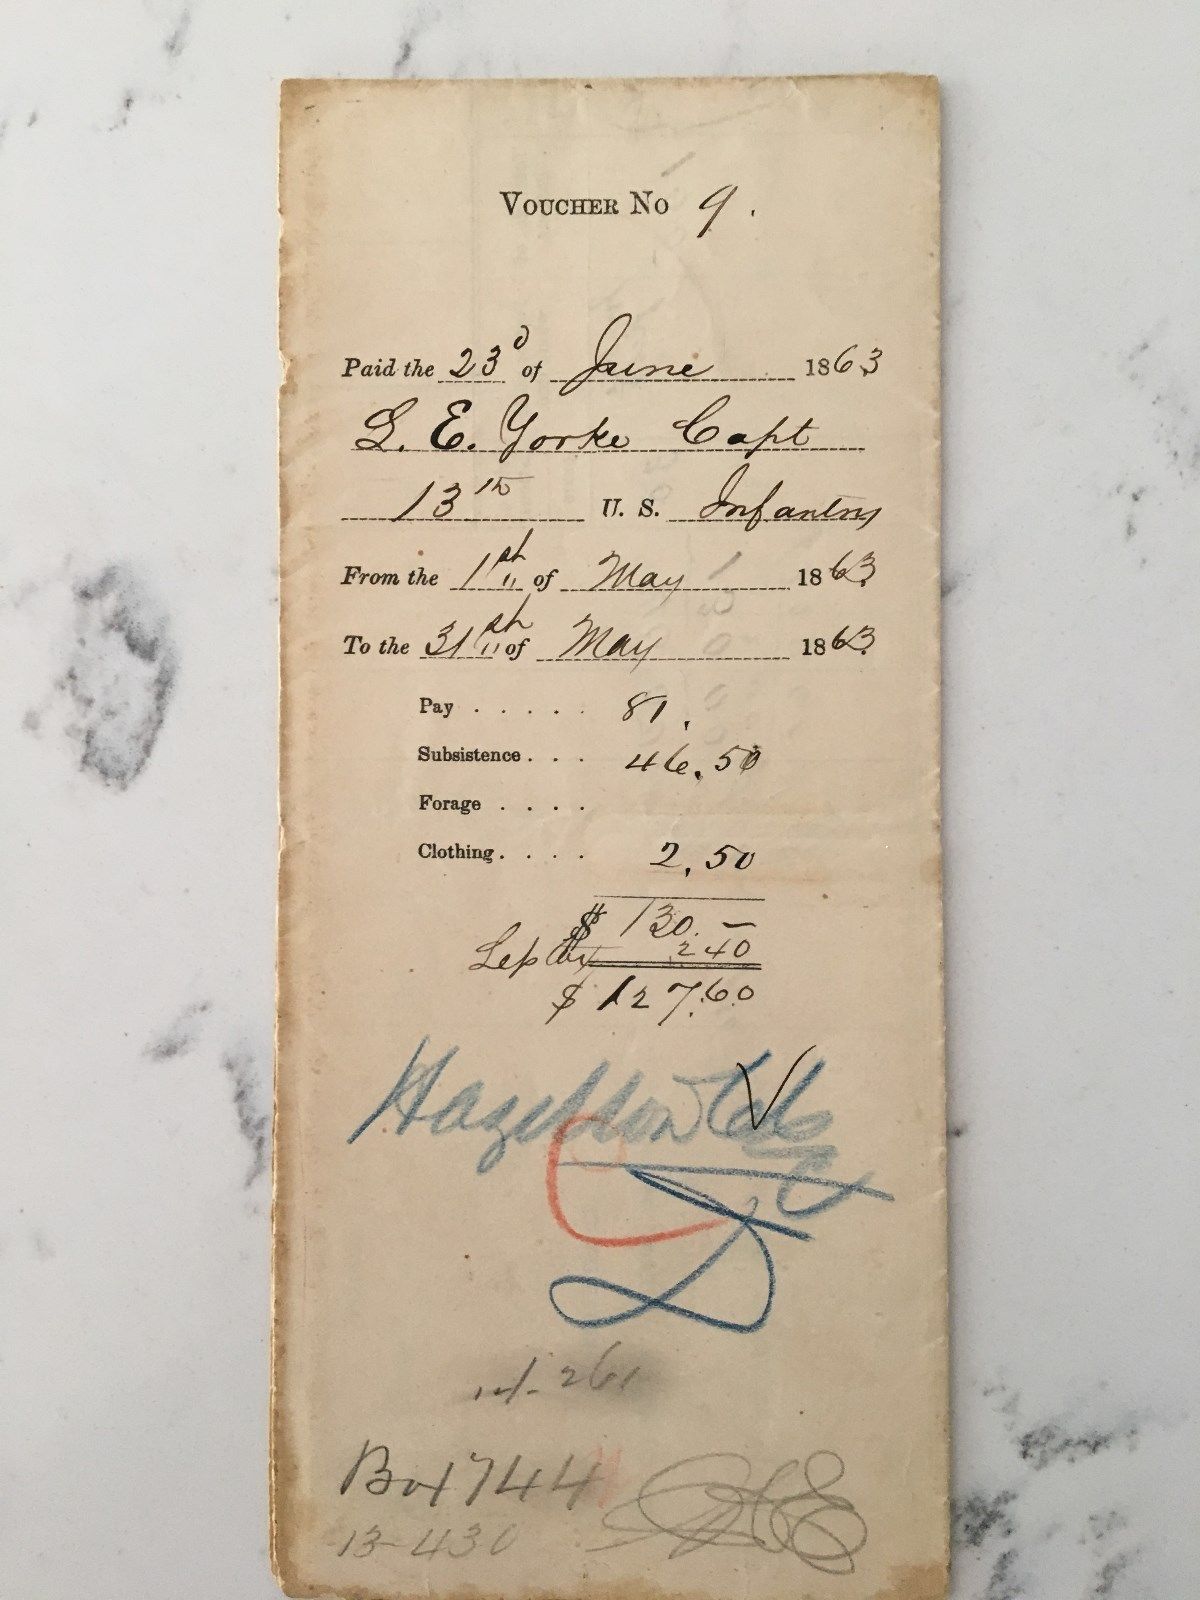 VOUCHER No 9.
Paid the 23d of June 1863
L. E. Yorke Capt
13th U. S. Infantry
From the 1st of May 1863
To the 31st of May 1863
Pay ..... 81.
Subsistence... 46.50
Forage ....
Clothing.... 2.50
$ 130.—
Less tax 2 40
$ 127.60
14-261
Box 744
13-430